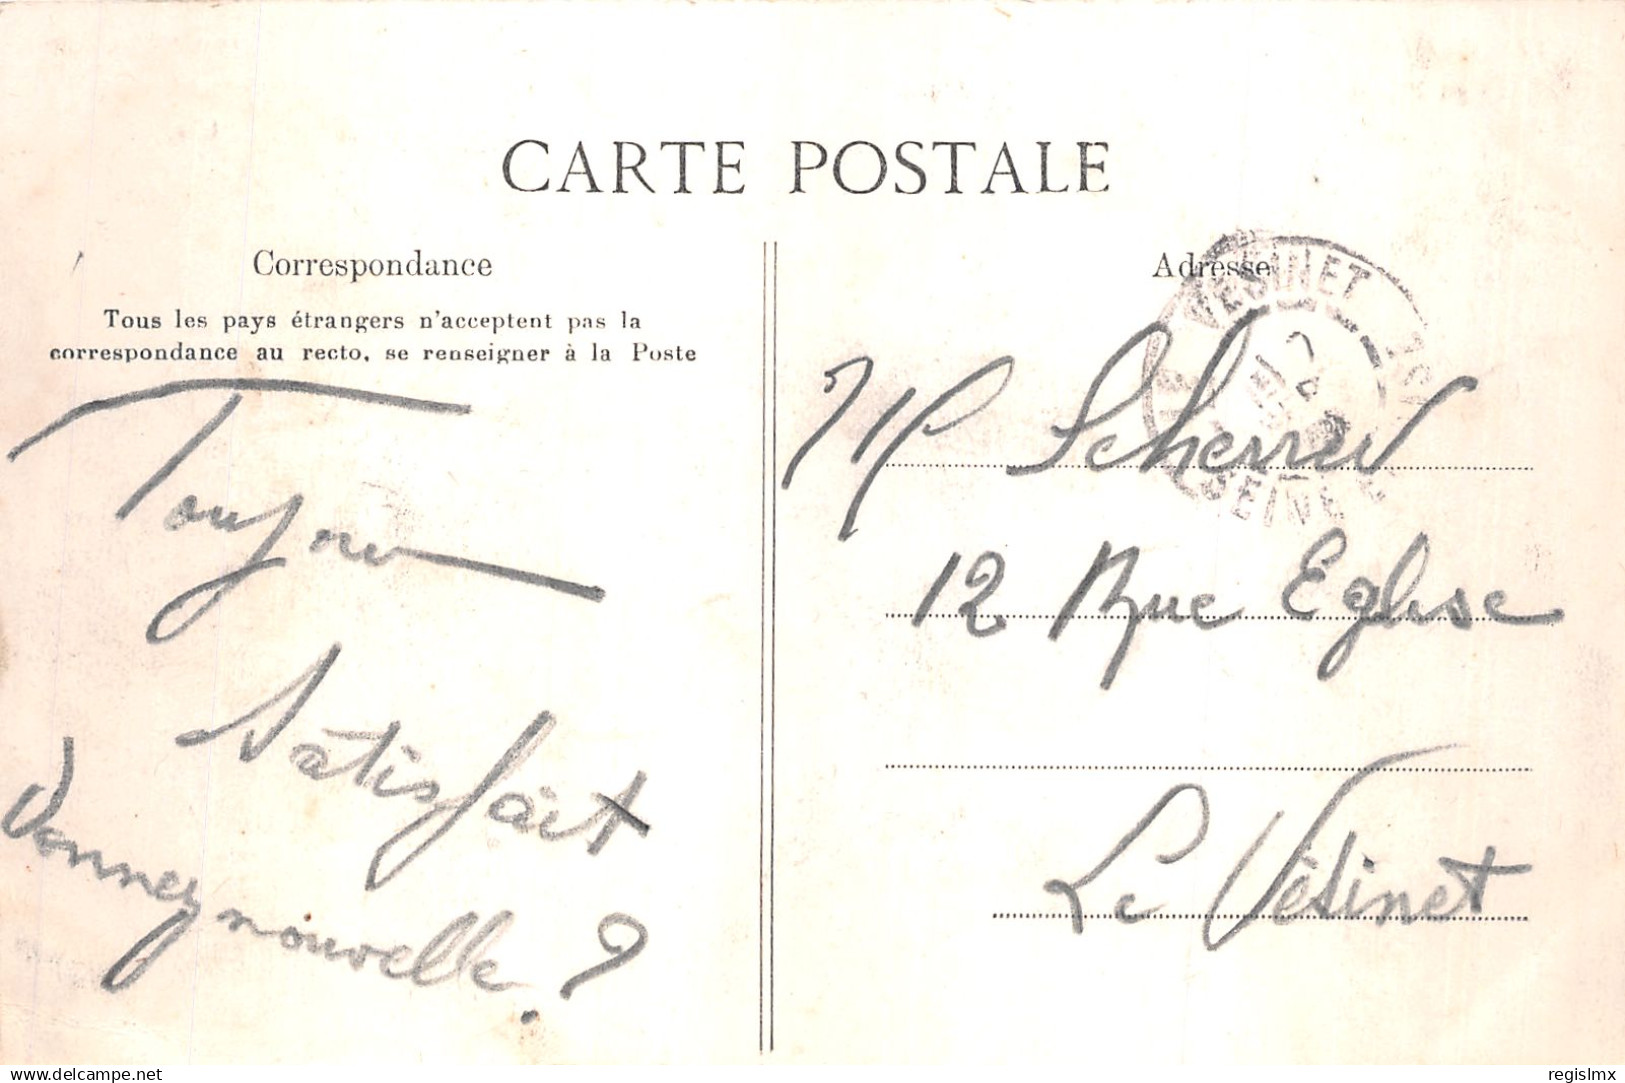 CARTE POSTALE
Correspondance
Tous les pays étrangers n'acceptent pas la
correspondance au recto, se renseigner à la Poste
Satisfait
Donnez nouvelle ?
Adresse
VÉSINET
SEINE
12 Rue Eglise
Le Vésinet
www.delcampe.net
regislmx